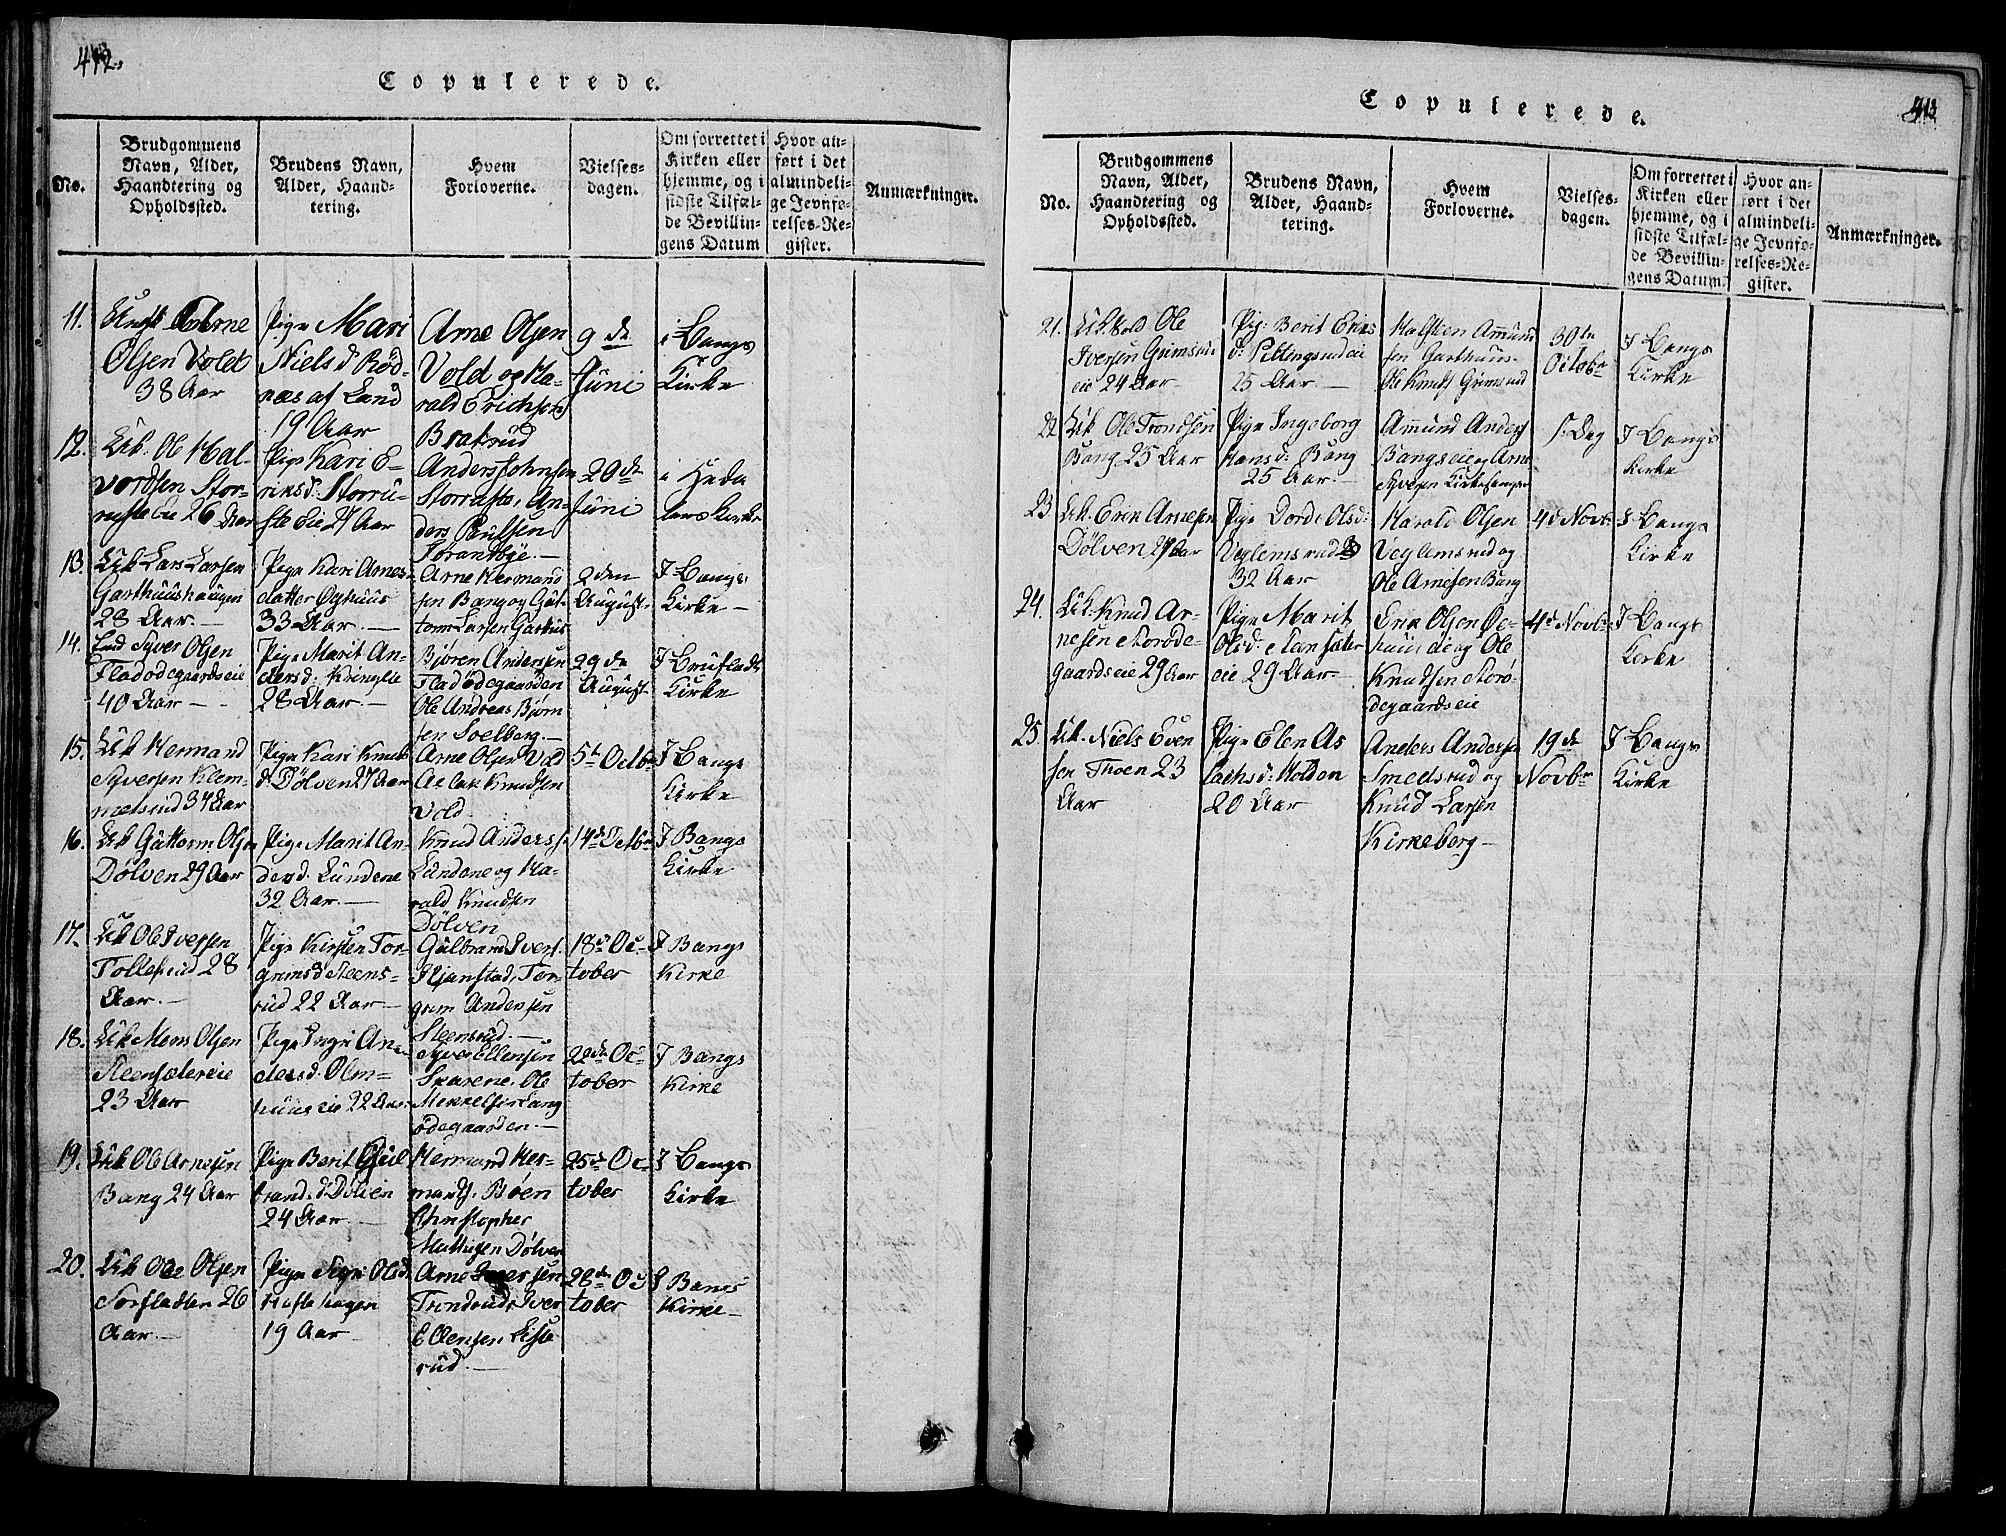 412.
Copulerede.
No.
Brudgommens
Navn, Alder,
Haandtering og
Opholdssted.
Brudens Navn,
Alder, Haand-
tering.
Hvem
Forloverne.
Vielses-
dagen.
Om forrettet i
Kirken eller
hjemme, og i
sidste Tilfæl-
de Bevillin-
gens Datum
Hvor an-
ført i det
almindeli-
ge Jevnfø-
relses-Re-
gister.
Anmærkninger.
11.
Olsen Vold
38 Aar
Pige Mari
Niels d Rød-
næs af Land
19 Aar
Arne Olsen
Vold og Ha-
rald Erichsen
Bratrud
9 de
Juni
i Bangs
Kirke
12.
Uk. Ole Hal-
vordsen Stor-
ruste Eie 26 Aar
Pige Kari E-
riksd. Storru-
ste Eie 27 Aar
Anders Johnsen
Storruste, An-
ders Paulsen
29 de
Juni
i Heda
lens Kirke
13.
Uk Lars Larsen
Garthuushaugen
28 Aar.
Pige Kari Arnes-
datter
33 Aar.
Arne Hermand
sen Bang og Gut-
torm Larsen Garthus
2 den
August.
I Bangs
Kirke
14.
Syver Olsen
Fladødegaardseie
40 Aar
Pige Marit An-
dersd.
28 Aar.
Bjøren Andersen
Fladødegaarden
Ole Andreas Bjørn
sen Soelberg.
29 de
August
I Bruflads
Kirke
15.
Uk Hermand
Syversen Klem-
metsrud 37 Aar
Pige Kari Knuds
d. Dølven 27 Aar
Arne Olsen Vold
Aslak Knudsen
Vold
5te Octbr
I Bangs
Kirke
16.
Uk Guttorm Olsen
Dølven 29 Aar
Pige Marit An-
dersd. Lundene
32 Aar.
Knud Anderss.
Lundene og Ha-
rald Knudsen
Dølven
14 de Octbr
I Bangs
Kirke
17.
Uk Ole Iversen
Tollefsrud 28
Aar.
Pige Kirsten Tor-
grimsd Steens-
rud 22 Aar
Gulbrand Ivers.
Hjanstad, Tor-
grim Andersen
Steensrud.
18 de Oc-
tober
I Bangs
Kirke
18.
Uk Mons Olsen
Steensætereie
23 Aar
Pige Ingri An-
dersd. Olm-
huus eie 22 Aar
Syver Ellensen
Skarene. Ole
Mekkelsen Lang
ødegaarden.
22 de Oc-
tober
I Bangs
Kirke
19.
Uk Ole Arnesen
Bang 24 Aar
Pige Berit Gul
brands d. Dølven
24 Aar
Hermand Her-
mands. Bøen
Christopher
Mathisen Dølven
25 de Oc-
tober
I Bangs
Kirke
20.
Uk Ole Olsen
26
Aar.
Pige Sigri Olsd
Hestehagen
19 Aar
Arne Iversen
Trondrud, Iver
Ellensen Liste
rud.
28 de Oc
tober
I Bangs
Kirke
413
Copulerede.
No.
Brudgommens
Navn, Alder,
Haandtering og
Opholdssted.
Brudens Navn,
Alder, Haand-
tering.
Hvem
Forloverne.
Vielses-
dagen.
Om forrettet i
Kirken eller
hjemme, og i
sidste Tilfæl-
de Bevillin-
gens Datum.
Hvor an-
ført i det
almindeli-
ge Jevnfø-
relses-Re-
gister.
Anmærkninger.
21.
Ole
Iversen Grimsrud
eie 24 Aar
Pige Berit Eriks
d. Pettingsrudeie
25 Aar.
Halsteen Amund
sen Garthuus.
Ole Knuds Grimsrud
30te
Octobr
I Bangs
Kirke
22
Uk Ole Trondsen
Bang 25 Aar
Pige Ingeborg
Hansd: Bang
25 Aar.
Amund Anders
Bangseie og Arne
s. Dag
I Bangs
Kirke
23
Uk. Erik Arnesen
Dølven 27 Aar
Pige Dorde Olsd:
Veglemsrud
32 Aar
Harald Olsen
Veglemsrud og
Ole Arnesen Bang
4 d Novbr
I Bangs
Kirke
24.
Uk: Knud Ar-
nesen Storøde-
gaardseie 29 Aar
Pige Marit
Olsd. Steensæter
eie 29 Aar
Erik Olsen
eie og Ole
Knudsen Storø-
degaardseie
4 d Novbr
I Bangs
Kirke
25.
Uk. Niels Even
sen Thoen 23
Aar
Pige Elen As
lachsd: Holden
20 Aar
Anders Andersen
Smedsrud og
Knud Larsen
Kirkeberg
19 de
Novbr
I Bangs
Kirke